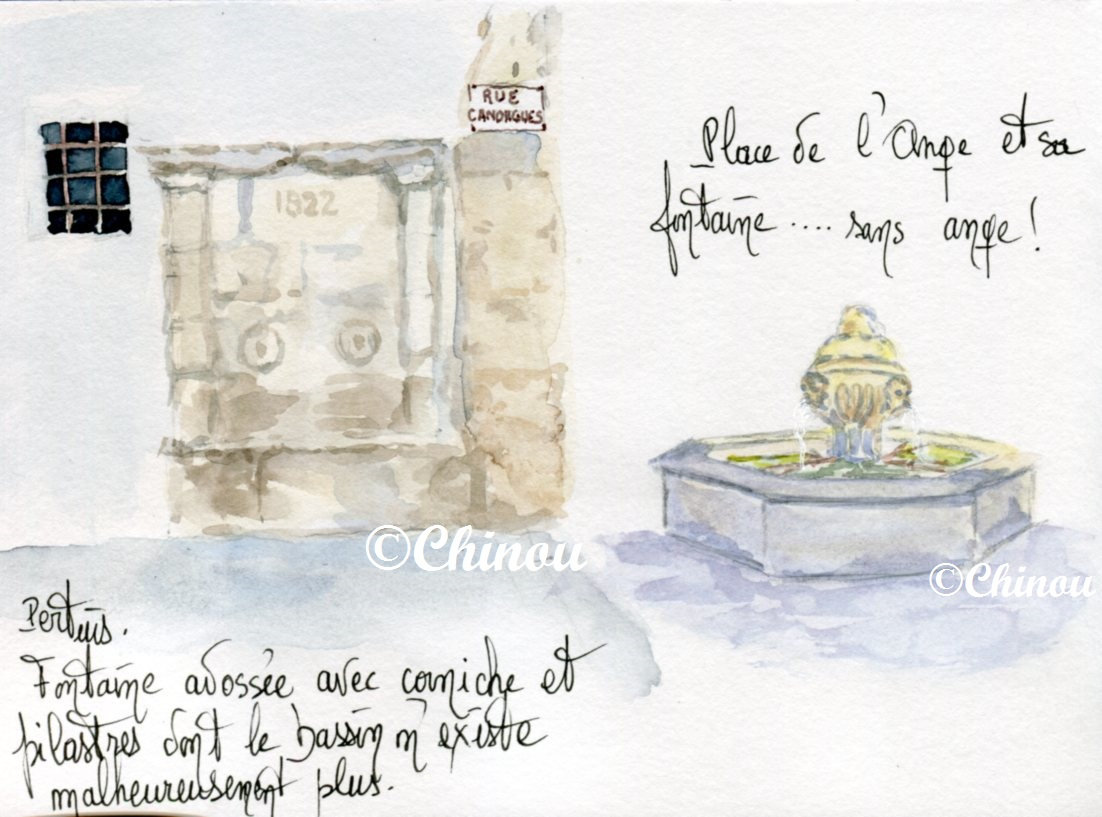 RUE
CANORGUES
1822
Place de l'Ange et sa
fontaine .... sans ange !
©Chinou
©Chinou
Pertuis.
Fontaine adossée avec corniche et
pilastres dont le bassin n'existe
malheureusement plus.